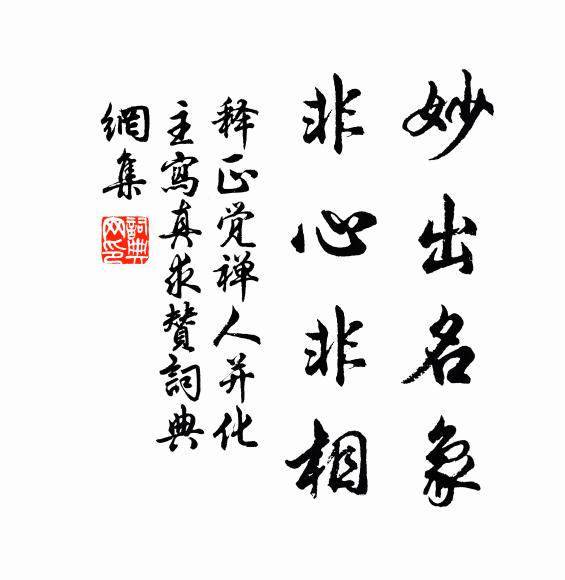 妙出名象
非心非相
释正觉禅人并化
主寫真求贊詞典
網集
詞典网印